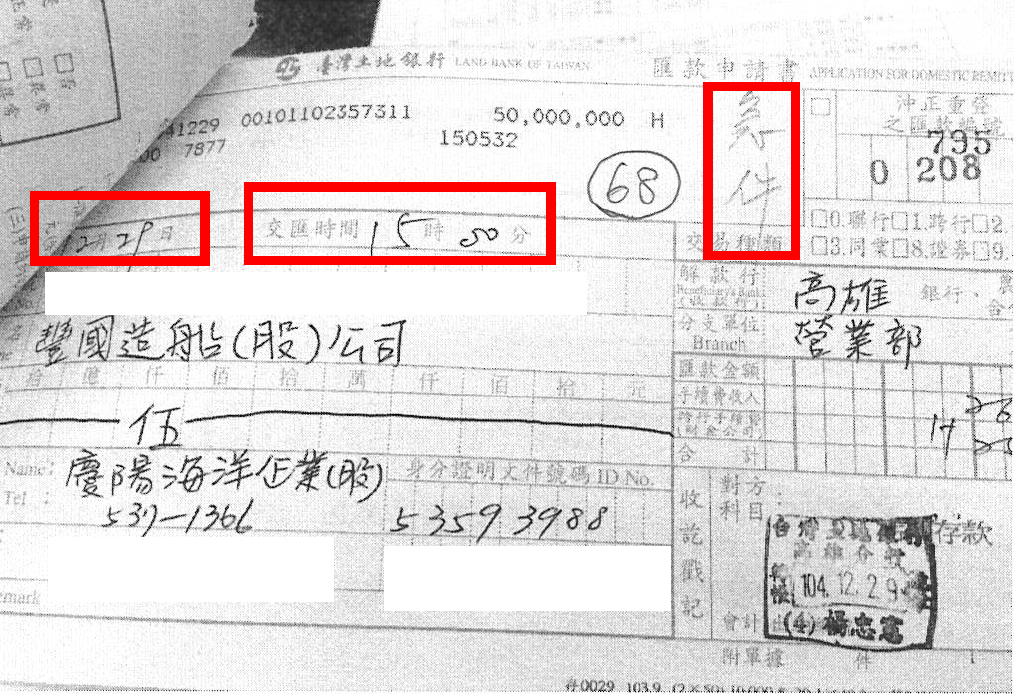 臺灣土地銀行 LAND BANK OF TAIWAN 匯款申請書 APPLICATION FOR DOMESTIC REMITT
41229 00101102357311 50,000,000 H
7877 150532
急件
沖正重發
之匯款編號
795
0 208
68
12月29日 交匯時間 15時50分
交易種類 □0.聯行□1.跨行□2.
□3.同業□8.證券□9.
解款行
(收款行)
高雄 銀行、
分支單位
Branch
營業部
豐國造船(股)公司
拾 億 仟 佰 拾 萬 仟 佰 拾 元
匯款金額
手續費收入
伍
合計
Name: 慶陽海洋企業(股) 身分證明文件號碼 ID No.
Tel : 537-1366 53593988
收訖戳記
對方
科目
存款
104.12.29
(4) 楊忠憲
emark
會計
附單據 件
0029 103.9